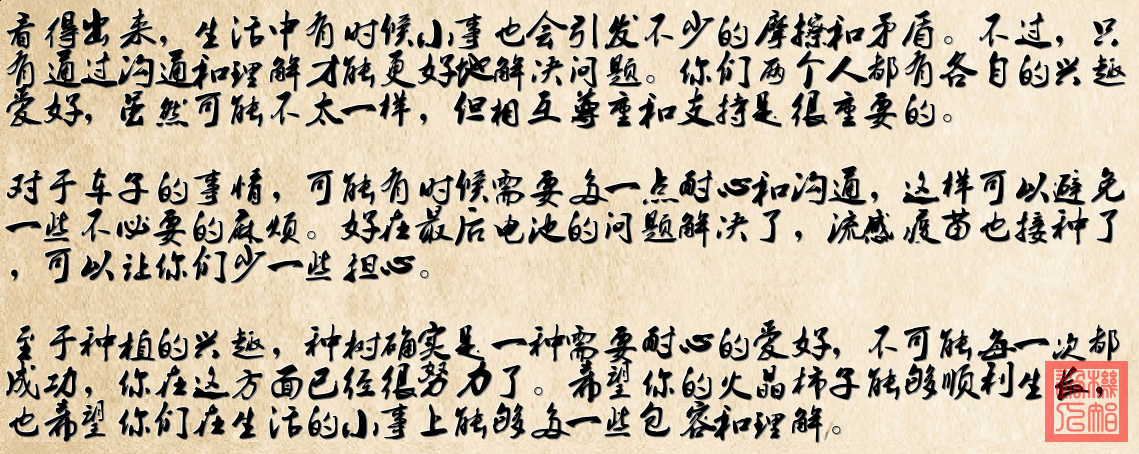 看得出来，生活中有时候小事也会引发不少的摩擦和矛盾。不过，只
有通过沟通和理解才能更好地解决问题。你们两个人都有各自的兴趣
爱好，虽然可能不太一样，但相互尊重和支持是很重要的。
对于车子的事情，可能有时候需要多一点耐心和沟通，这样可以避免
一些不必要的麻烦。好在最后电池的问题解决了，流感疫苗也接种了
，可以让你们少一些担心。
至于种植的兴趣，种树确实是一种需要耐心的爱好，不可能每一次都
成功，你在这方面已经很努力了。希望你的火晶柿子能够顺利生长，
也希望你们在生活的小事上能够多一些包容和理解。